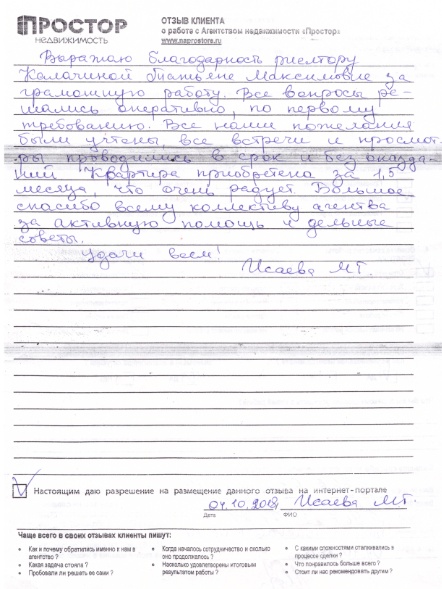 ПРОСТОР
НЕДВИЖИМОСТЬ
ОТЗЫВ КЛИЕНТА
о работе с Агентством недвижимости «Простор»
www.naprostore.ru
Выражаю благодарность риелтору
Калачиной Татьяне Максимовне за
грамотную работу. Все вопросы ре-
шались оперативно, по первому
требованию. Все наши пожелания
были учтены, все встречи и просмот-
ры проводились в срок и без опозда-
ний. Квартира приобретена за 1,5
месяца, что очень радует. Большое
спасибо всему коллективу агенства
за активную помощь и дельные
советы.
Удачи всем!
Исаева МТ.
Настоящим даю разрешение на размещение данного отзыва на интернет-портале
04.10.2012 Исаева МТ.
Дата ФИО
Чаще всего в своих отзывах клиенты пишут:
• Как и почему обратились именно к нам в агентство ?
• Какая задача стояла ?
• Пробовали ли решать ее сами ?
• Когда началось сотрудничество и сколько оно продолжалось ?
• Насколько удовлетворены итоговым результатом работы ?
• С какими сложностями сталкивались в процессе сделки ?
• Что понравилось больше всего ?
• Стоит ли нас рекомендовать другим ?